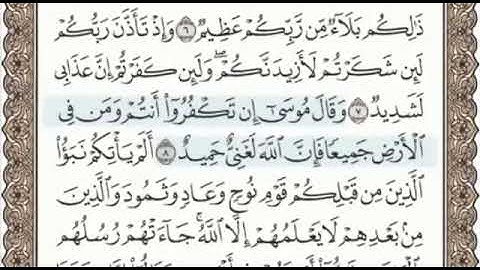 ذَٰلِكُم بَلَآءٌ مِّن رَّبِّكُمْ عَظِيمٌ ٦ وَإِذْ تَأَذَّنَ رَبُّكُمْ
لَئِن شَكَرْتُمْ لَأَزِيدَنَّكُمْ ۖ وَلَئِن كَفَرْتُمْ إِنَّ عَذَابِى
لَشَدِيدٌ ٧ وَقَالَ مُوسَىٰٓ إِن تَكْفُرُوٓا۟ أَنتُمْ وَمَن فِى
ٱلْأَرْضِ جَمِيعًا فَإِنَّ ٱللَّهَ لَغَنِىٌّ حَمِيدٌ ٨ أَلَمْ يَأْتِكُمْ نَبَؤُا۟
ٱلَّذِينَ مِن قَبْلِكُمْ قَوْمِ نُوحٍ وَعَادٍ وَثَمُودَ وَٱلَّذِينَ
مِنۢ بَعْدِهِمْ لَا يَعْلَمُهُمْ إِلَّا ٱللَّهُ ۚ جَآءَتْهُمْ رُسُلُهُم